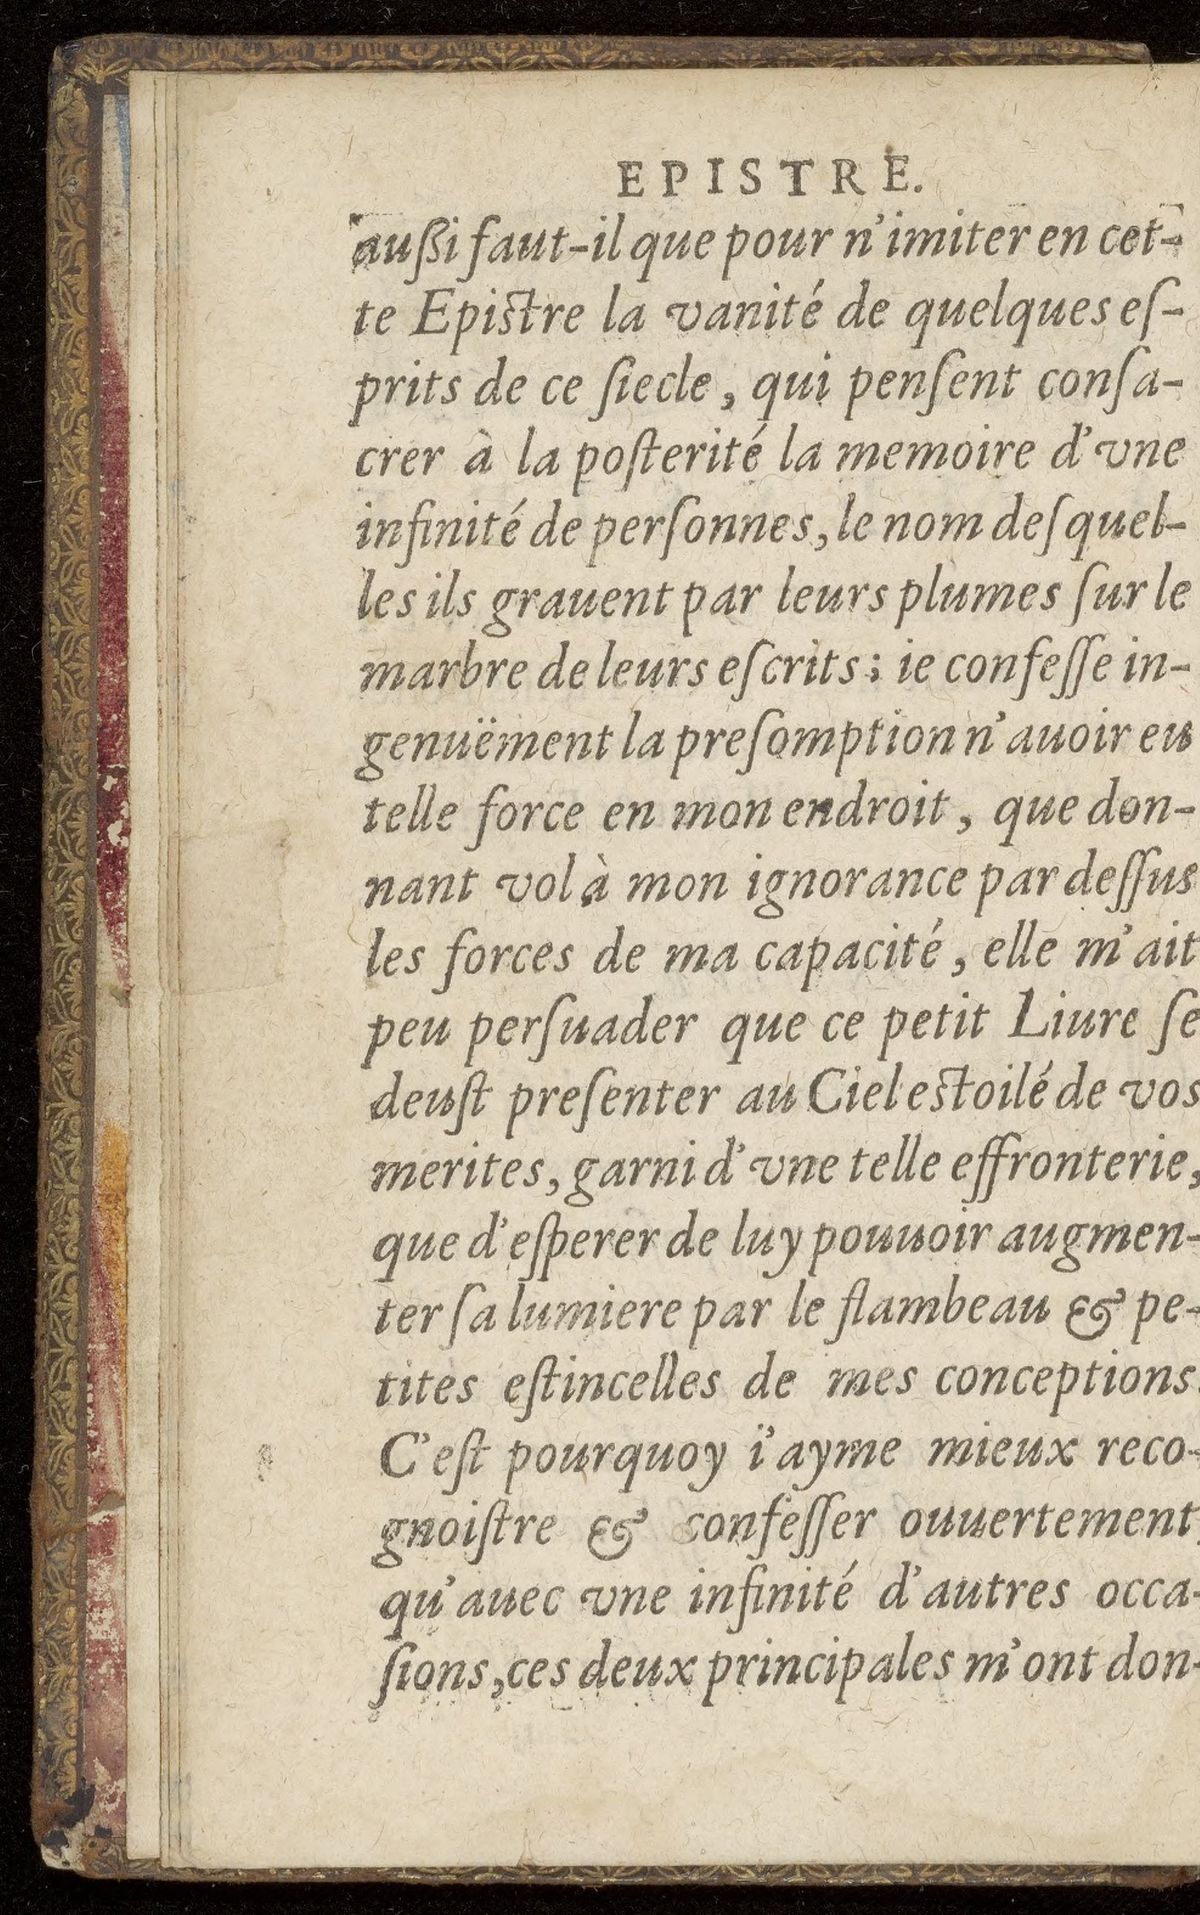 EPISTRE.
außi faut-il que pour n'imiter en cet-
te Epiſtre la vanité de quelques eſ-
prits de ce ſiecle, qui penſent conſa-
crer à la poſterité la memoire d'vne
infinité de perſonnes, le nom deſquel-
les ils grauent par leurs plumes ſur le
marbre de leurs eſcrits; ie confeſſe in-
genuëment la preſomption n'auoir eu
telle force en mon endroit, que don-
nant vol à mon ignorance par deſſus
les forces de ma capacité, elle m'ait
peu perſuader que ce petit Liure ſe
deuſt preſenter au Ciel eſtoilé de vos
merites, garni d'vne telle effronterie,
que d'eſperer de luy pouuoir augmen-
ter ſa lumiere par le flambeau & pe-
tites eſtincelles de mes conceptions.
C'eſt pourquoy i'ayme mieux reco-
gnoiſtre & confeſſer ouuertement,
qu'auec vne infinité d'autres occa-
ſions, ces deux principales m'ont don-